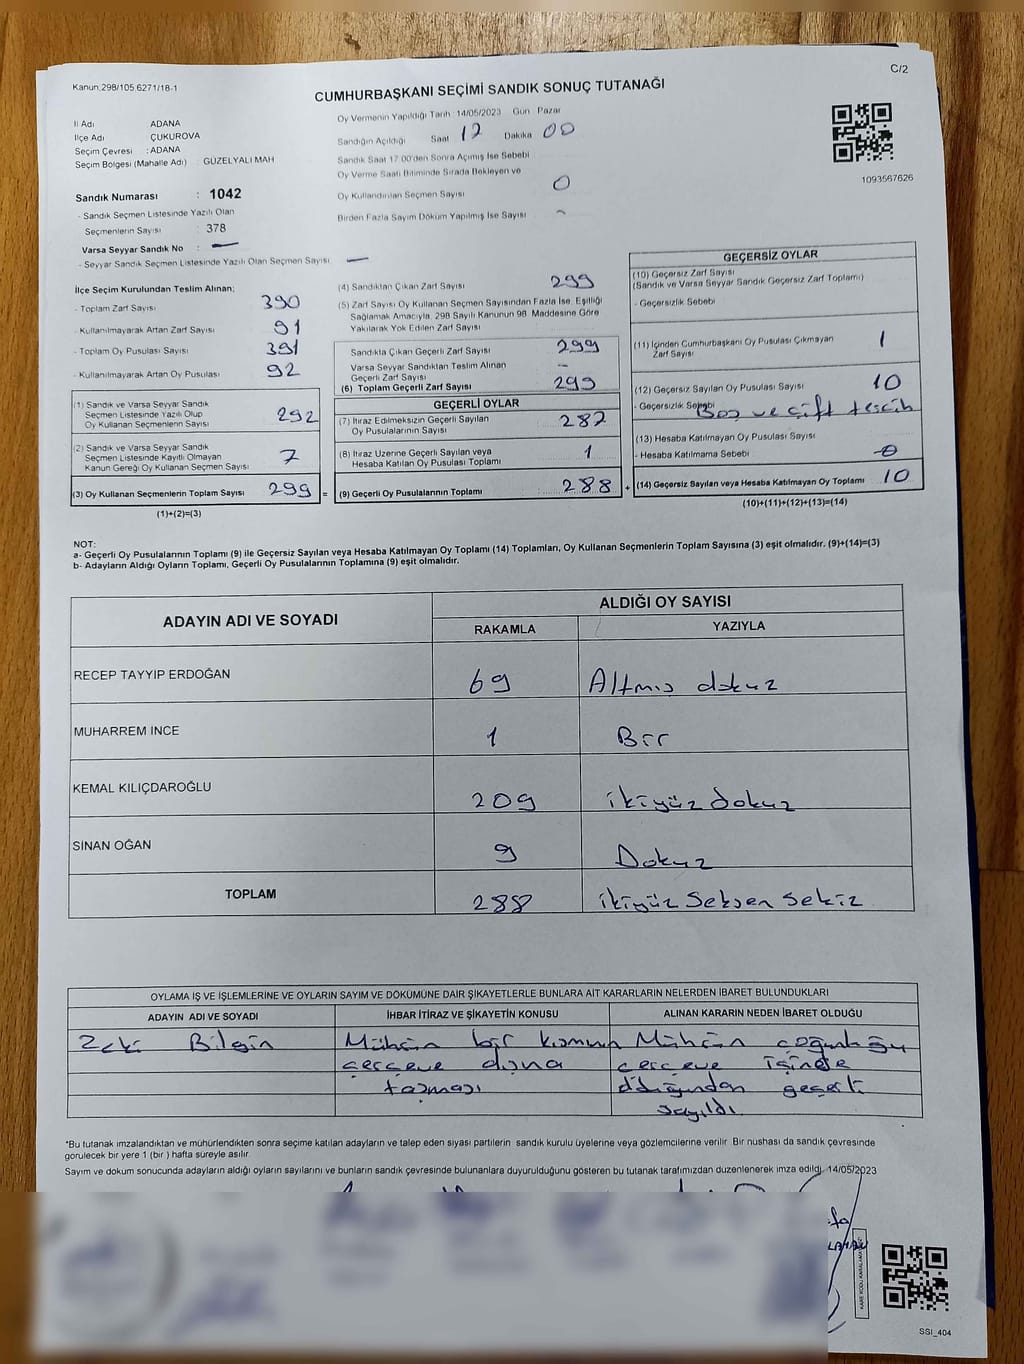 Kanun;298/105;6271/18-1
C/2
CUMHURBAŞKANI SEÇİMİ SANDIK SONUÇ TUTANAĞI
İl Adı ADANA
İlçe Adı ÇUKUROVA
Seçim Çevresi : ADANA
Seçim Bölgesi (Mahalle Adı) : GÜZELYALI MAH
Sandık Numarası : 1042
- Sandık Seçmen Listesinde Yazılı Olan
Seçmenlerin Sayısı : 378
Varsa Seyyar Sandık No : —
- Seyyar Sandık Seçmen Listesinde Yazılı Olan Seçmen Sayısı —
Oy Vermenin Yapıldığı Tarih 14/05/2023 Gün Pazar
Sandığın Açıldığı Saat 17 Dakika 00
Sandık Saat 17:00'den Sonra Açımış İse Sebebi
Oy Verme Saati Bitiminde Sırada Bekleyen ve
Oy Kullandırılan Seçmen Sayısı 0
Birden Fazla Sayım Döküm Yapılmış İse Sayısı -
1093567626
İlçe Seçim Kurulundan Teslim Alınan;
- Toplam Zarf Sayısı 390
- Kullanılmayarak Artan Zarf Sayısı 91
- Toplam Oy Pusulası Sayısı 391
- Kullanılmayarak Artan Oy Pusulası 92
(1) Sandık ve Varsa Seyyar Sandık
Seçmen Listesinde Yazılı Olup
Oy Kullanan Seçmenlerin Sayısı 292
(2) Sandık ve Varsa Seyyar Sandık
Seçmen Listesinde Kayıtlı Olmayan
Kanun Gereği Oy Kullanan Seçmen Sayısı 7
(3) Oy Kullanan Seçmenlerin Toplam Sayısı 299 =
(1)+(2)=(3)
(4) Sandıktan Çıkan Zarf Sayısı 299
(5) Zarf Sayısı Oy Kullanan Seçmen Sayısından Fazla İse, Eşitliği
Sağlamak Amacıyla, 298 Sayılı Kanunun 98. Maddesine Göre
Yakılarak Yok Edilen Zarf Sayısı
Sandıkta Çıkan Geçerli Zarf Sayısı 299
Varsa Seyyar Sandıktan Teslim Alınan
Geçerli Zarf Sayısı -
(6) Toplam Geçerli Zarf Sayısı 299
GEÇERLİ OYLAR
(7) İtiraz Edilmeksizin Geçerli Sayılan
Oy Pusulalarının Sayısı 287
(8) İtiraz Üzerine Geçerli Sayılan veya
Hesaba Katılan Oy Pusulası Toplamı 1
(9) Geçerli Oy Pusulalarının Toplamı 288 +
GEÇERSİZ OYLAR
(10) Geçersiz Zarf Sayısı
(Sandık ve Varsa Seyyar Sandık Geçersiz Zarf Toplamı)
- Geçersizlik Sebebi
(11) İçinden Cumhurbaşkanı Oy Pusulası Çıkmayan
Zarf Sayısı 1
(12) Geçersiz Sayılan Oy Pusulası Sayısı 10
- Geçersizlik Sebebi Boş ve çift tercih
(13) Hesaba Katılmayan Oy Pusulası Sayısı
- Hesaba Katılmama Sebebi 0
(14) Geçersiz Sayılan veya Hesaba Katılmayan Oy Toplamı 10
(10)+(11)+(12)+(13)=(14)
NOT:
a- Geçerli Oy Pusulalarının Toplamı (9) ile Geçersiz Sayılan veya Hesaba Katılmayan Oy Toplamı (14) Toplamları, Oy Kullanan Seçmenlerin Toplam Sayısına (3) eşit olmalıdır. (9)+(14)=(3)
b- Adayların Aldığı Oyların Toplamı, Geçerli Oy Pusulalarının Toplamına (9) eşit olmalıdır.
ADAYIN ADI VE SOYADI
ALDIĞI OY SAYISI
RAKAMLA YAZIYLA
RECEP TAYYİP ERDOĞAN 69 Altmış dokuz
MUHARREM İNCE 1 Bir
KEMAL KILIÇDAROĞLU 209 ikiyüz dokuz
SİNAN OĞAN 9 Dokuz
TOPLAM 288 ikiyüz Seksen Sekiz
OYLAMA İŞ VE İŞLEMLERİNE VE OYLARIN SAYIM VE DÖKÜMÜNE DAİR ŞİKAYETLERLE BUNLARA AİT KARARLARIN NELERDEN İBARET BULUNDUKLARI
ADAYIN ADI VE SOYADI İHBAR İTİRAZ VE ŞİKAYETİN KONUSU ALINAN KARARIN NEDEN İBARET OLDUĞU
Zeki Bilgin Mührün bir kısmının Mührün çoğunluğu
çerçeve dışına çerçeve içinde
taşması olduğundan geçerli
sayıldı.
*Bu tutanak imzalandıktan ve mühürlendikten sonra seçime katılan adayların ve talep eden siyasi partilerin sandık kurulu üyelerine veya gözlemcilerine verilir. Bir nushası da sandık çevresinde
görülecek bir yere 1 (bir ) hafta süreyle asılır.
Sayım ve döküm sonucunda adayların aldığı oyların sayılarını ve bunların sandık çevresinde bulunanlara duyurulduğunu gösteren bu tutanak tarafımızdan düzenlenerek imza edildi. 14/05/2023
SSI_404